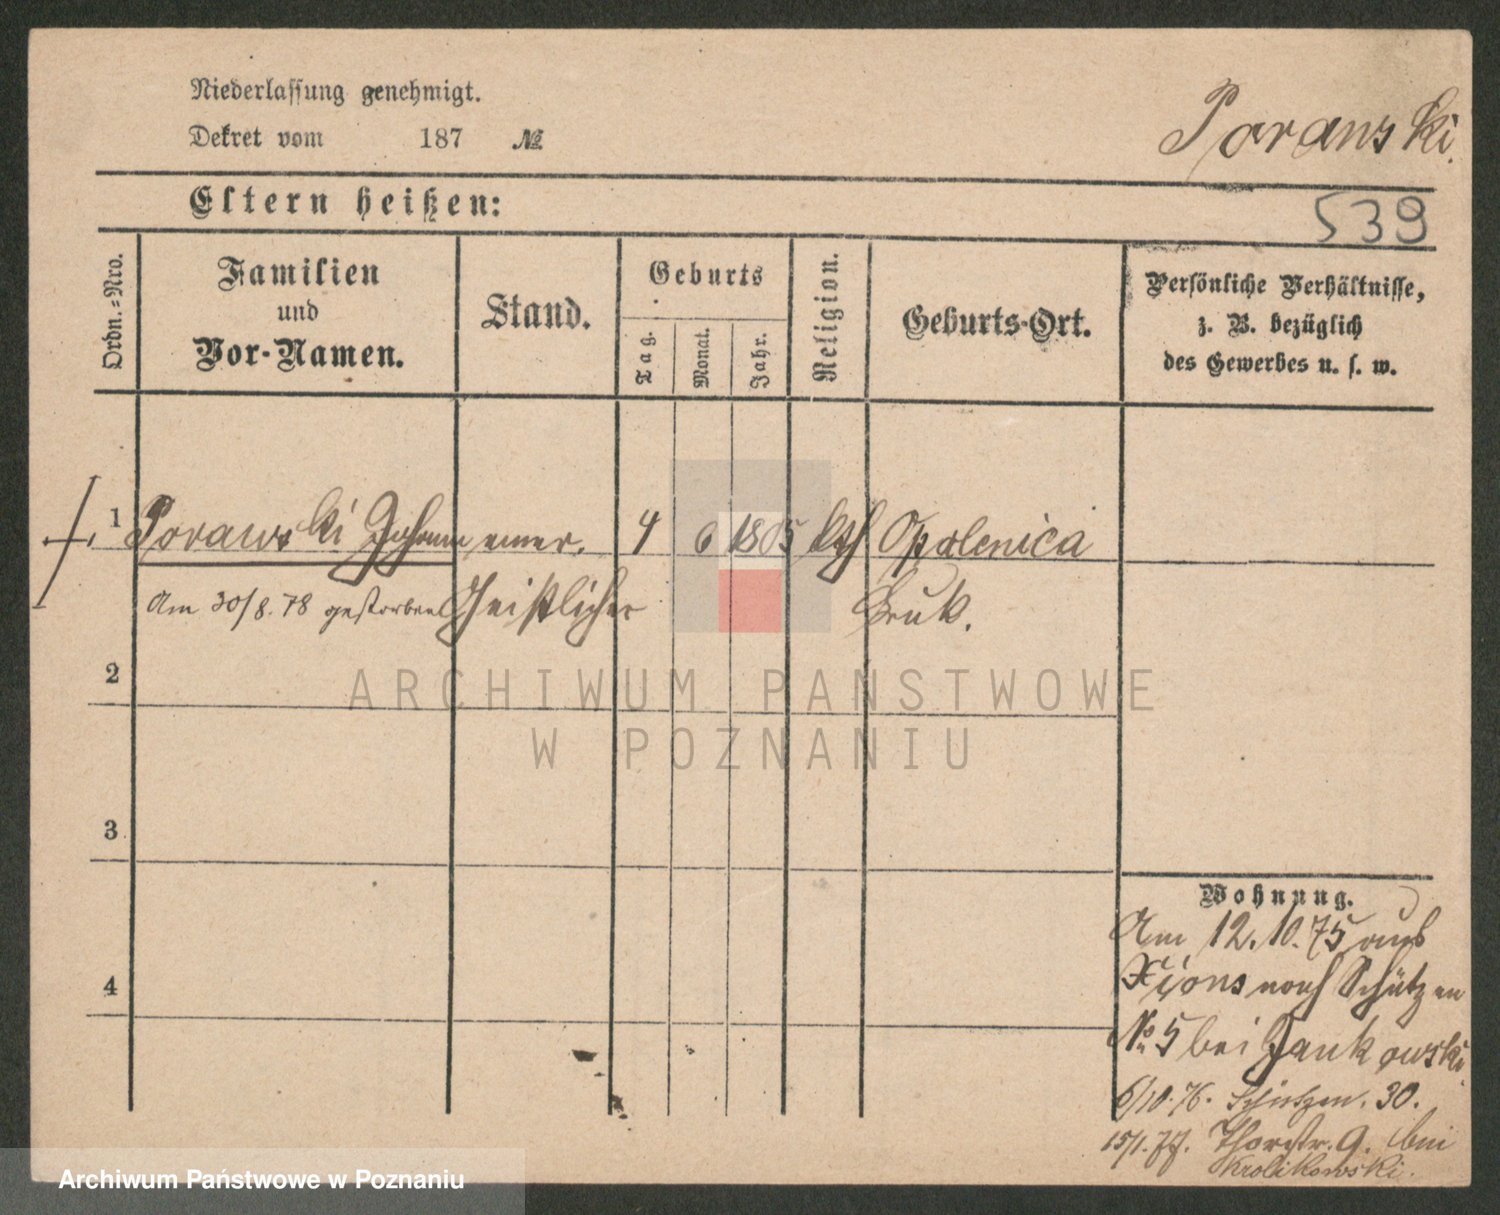 Niederlassung genehmigt.
Dekret vom 187 №
Porawski.
Eltern heißen:
539
Ordn.-Nro.
Familien
und
Vor-Namen.
Stand.
Geburts
Tag.
Monat.
Jahr.
Religion.
Geburts-Ort.
Persönliche Verhältnisse,
z. B. bezüglich
des Gewerbes u. s. w.
1 Porawski Johann emer. 4 6 1805 kth Opalenica
Am 30/8.78 gestorben Geistlicher Buk.
2
ARCHIWUM PAŃSTWOWE
W POZNANIU
3
4
Wohnung.
Am 12.10.75 aus
Xions nach Schützen
№ 5 bei Jankowski
6/10.76. Schützen. 30.
15/1.77. Thorstr. 9. bei
Krolikowski.
Archiwum Państwowe w Poznaniu